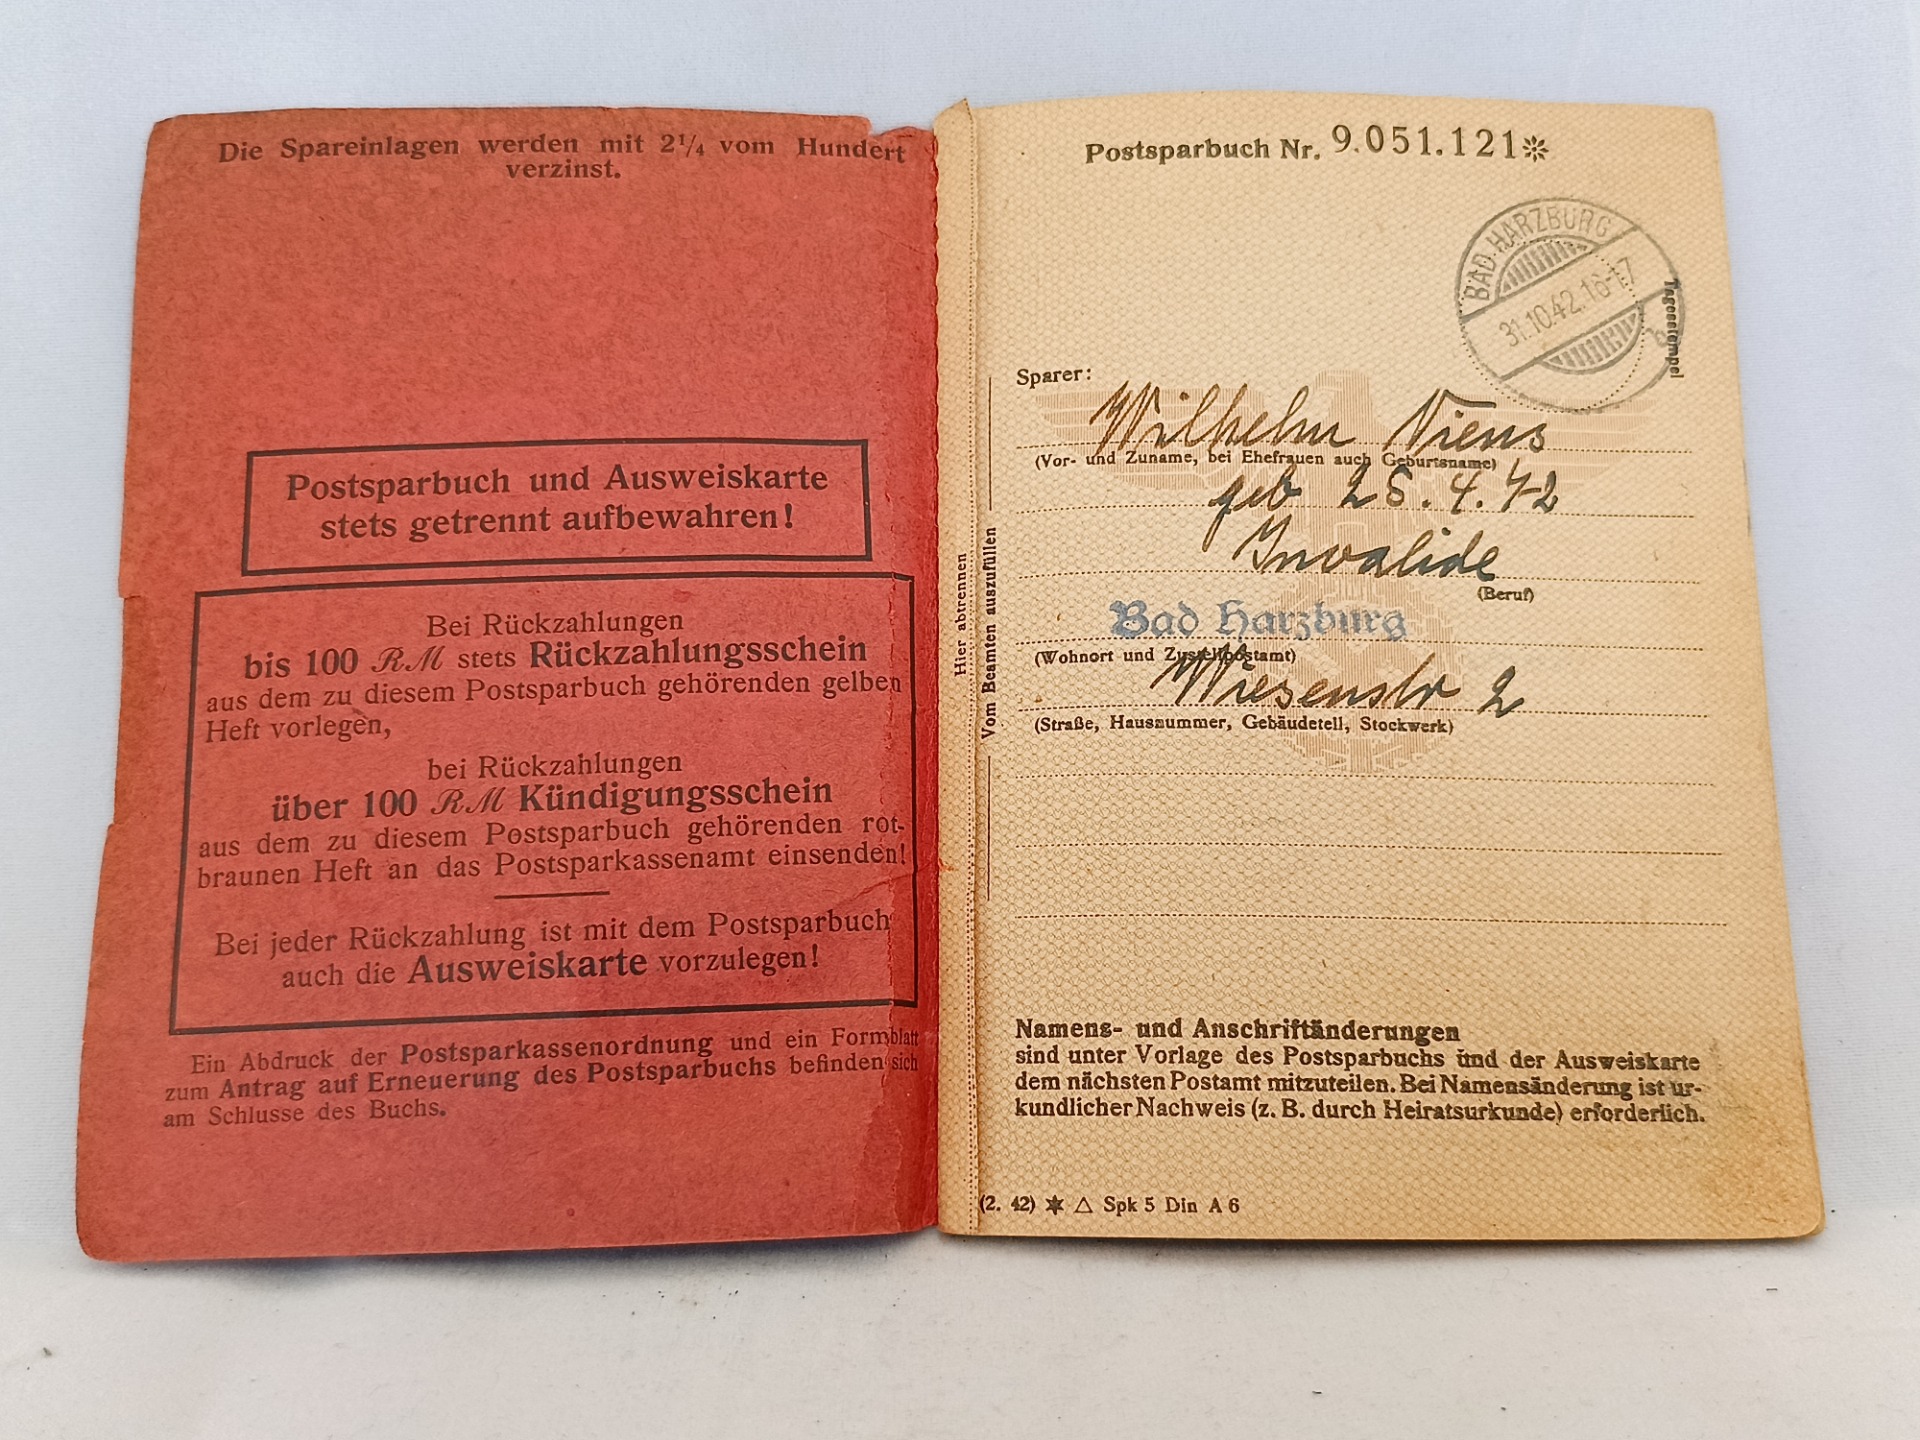 Die Spareinlagen werden mit 2¼ vom Hundert
verzinst.
Postsparbuch und Ausweiskarte
stets getrennt aufbewahren!
Bei Rückzahlungen
bis 100 RM stets Rückzahlungsschein
aus dem zu diesem Postsparbuch gehörenden gelben
Heft vorlegen,
bei Rückzahlungen
über 100 RM Kündigungsschein
aus dem zu diesem Postsparbuch gehörenden rot-
braunen Heft an das Postsparkassenamt einsenden!
Bei jeder Rückzahlung ist mit dem Postsparbuch
auch die Ausweiskarte vorzulegen!
Ein Abdruck der Postsparkassenordnung und ein Formblatt
zum Antrag auf Erneuerung des Postsparbuchs befinden sich
am Schlusse des Buchs.
Hier abtrennen
Vom Beamten auszufüllen
Postsparbuch Nr. 9.051.121*
BAD HARZBURG
31.10.42.16-17
b
Tagesstempel
Sparer:
Wilhelm Viens
(Vor- und Zuname, bei Ehefrauen auch Geburtsname)
geb 4.
Invalide
(Beruf)
Bad Harzburg
(Wohnort und Zustellpostamt)
Wiesenstr 2
(Straße, Hausnummer, Gebäudeteil, Stockwerk)
Namens- und Anschriftänderungen
sind unter Vorlage des Postsparbuchs und der Ausweiskarte
dem nächsten Postamt mitzuteilen. Bei Namensänderung ist ur-
kundlicher Nachweis (z. B. durch Heiratsurkunde) erforderlich.
(2. 42) ✶ △ Spk 5 Din A 6